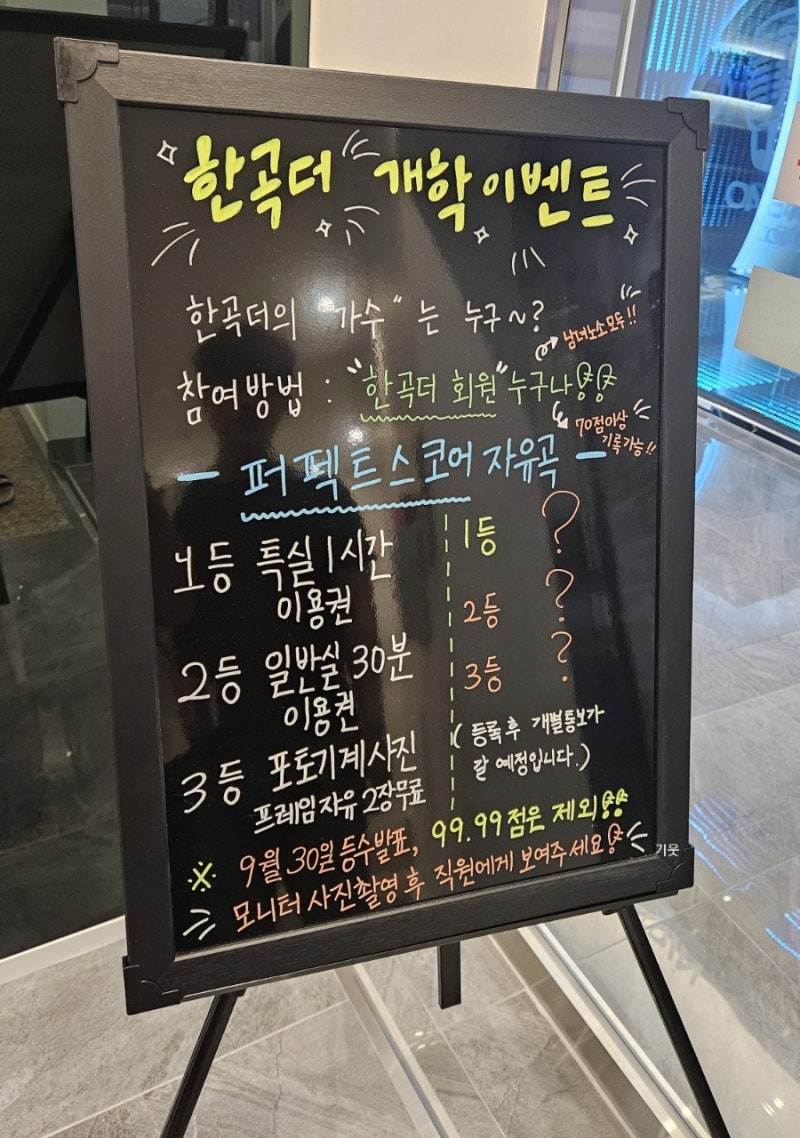 한곡더 개학이벤트
한곡더의 "가수"는 누구~?
남녀노소모두!!
참여방법 : "한곡더 회원"누구나!!
70점이상
기록가능!!
- 퍼펙트스코어 자유곡 -
1등 특실 1시간
이용권
2등 일반실 30분
이용권
3등 포토기계사진
프레임자유 2장무료
1등 ?
2등 ?
3등 ?
(등록후 개별통보가
갈 예정입니다.)
※ 9월 30일 등수발표, 99.99점은 제외!!
모니터 사진촬영 후 직원에게 보여주세요!
기웃